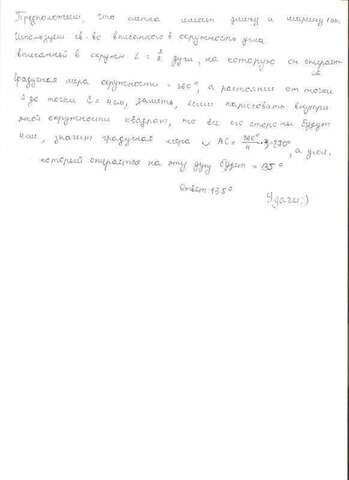 Предположим, что клетка имеет длину и ширину 1см.
Используем св-во вписанного в окружность угла
вписанный в окружн ∠ = 1/2 дуги, на которую он опирает
ся
Градусная мера окружности = 360°, а расстояние от точки
до точки C = 4см, заметь, если нарисовать внутри
этой окружности квадрат, то все его стороны будут
4см. значит градусная мера ◡ AC = 360°/4 · 3 = 270°, а угол,
который опирается на эту дугу будет = 135°
Ответ: 135°
Удачи:)